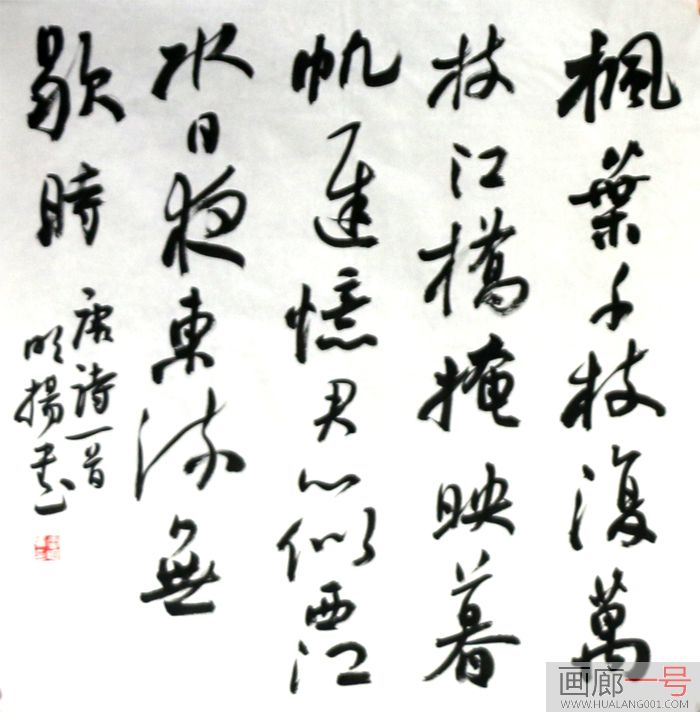 楓葉千枝復萬
枝江橋掩映暮
帆遲憶君心似西江
水日夜東流無
歇時
唐詩一首
明揚書
画廊一号
WWW.HUALANG001.COM